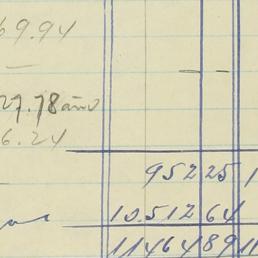 69.94
27.78 año
6.24
952 25
10.512 64
11464 89